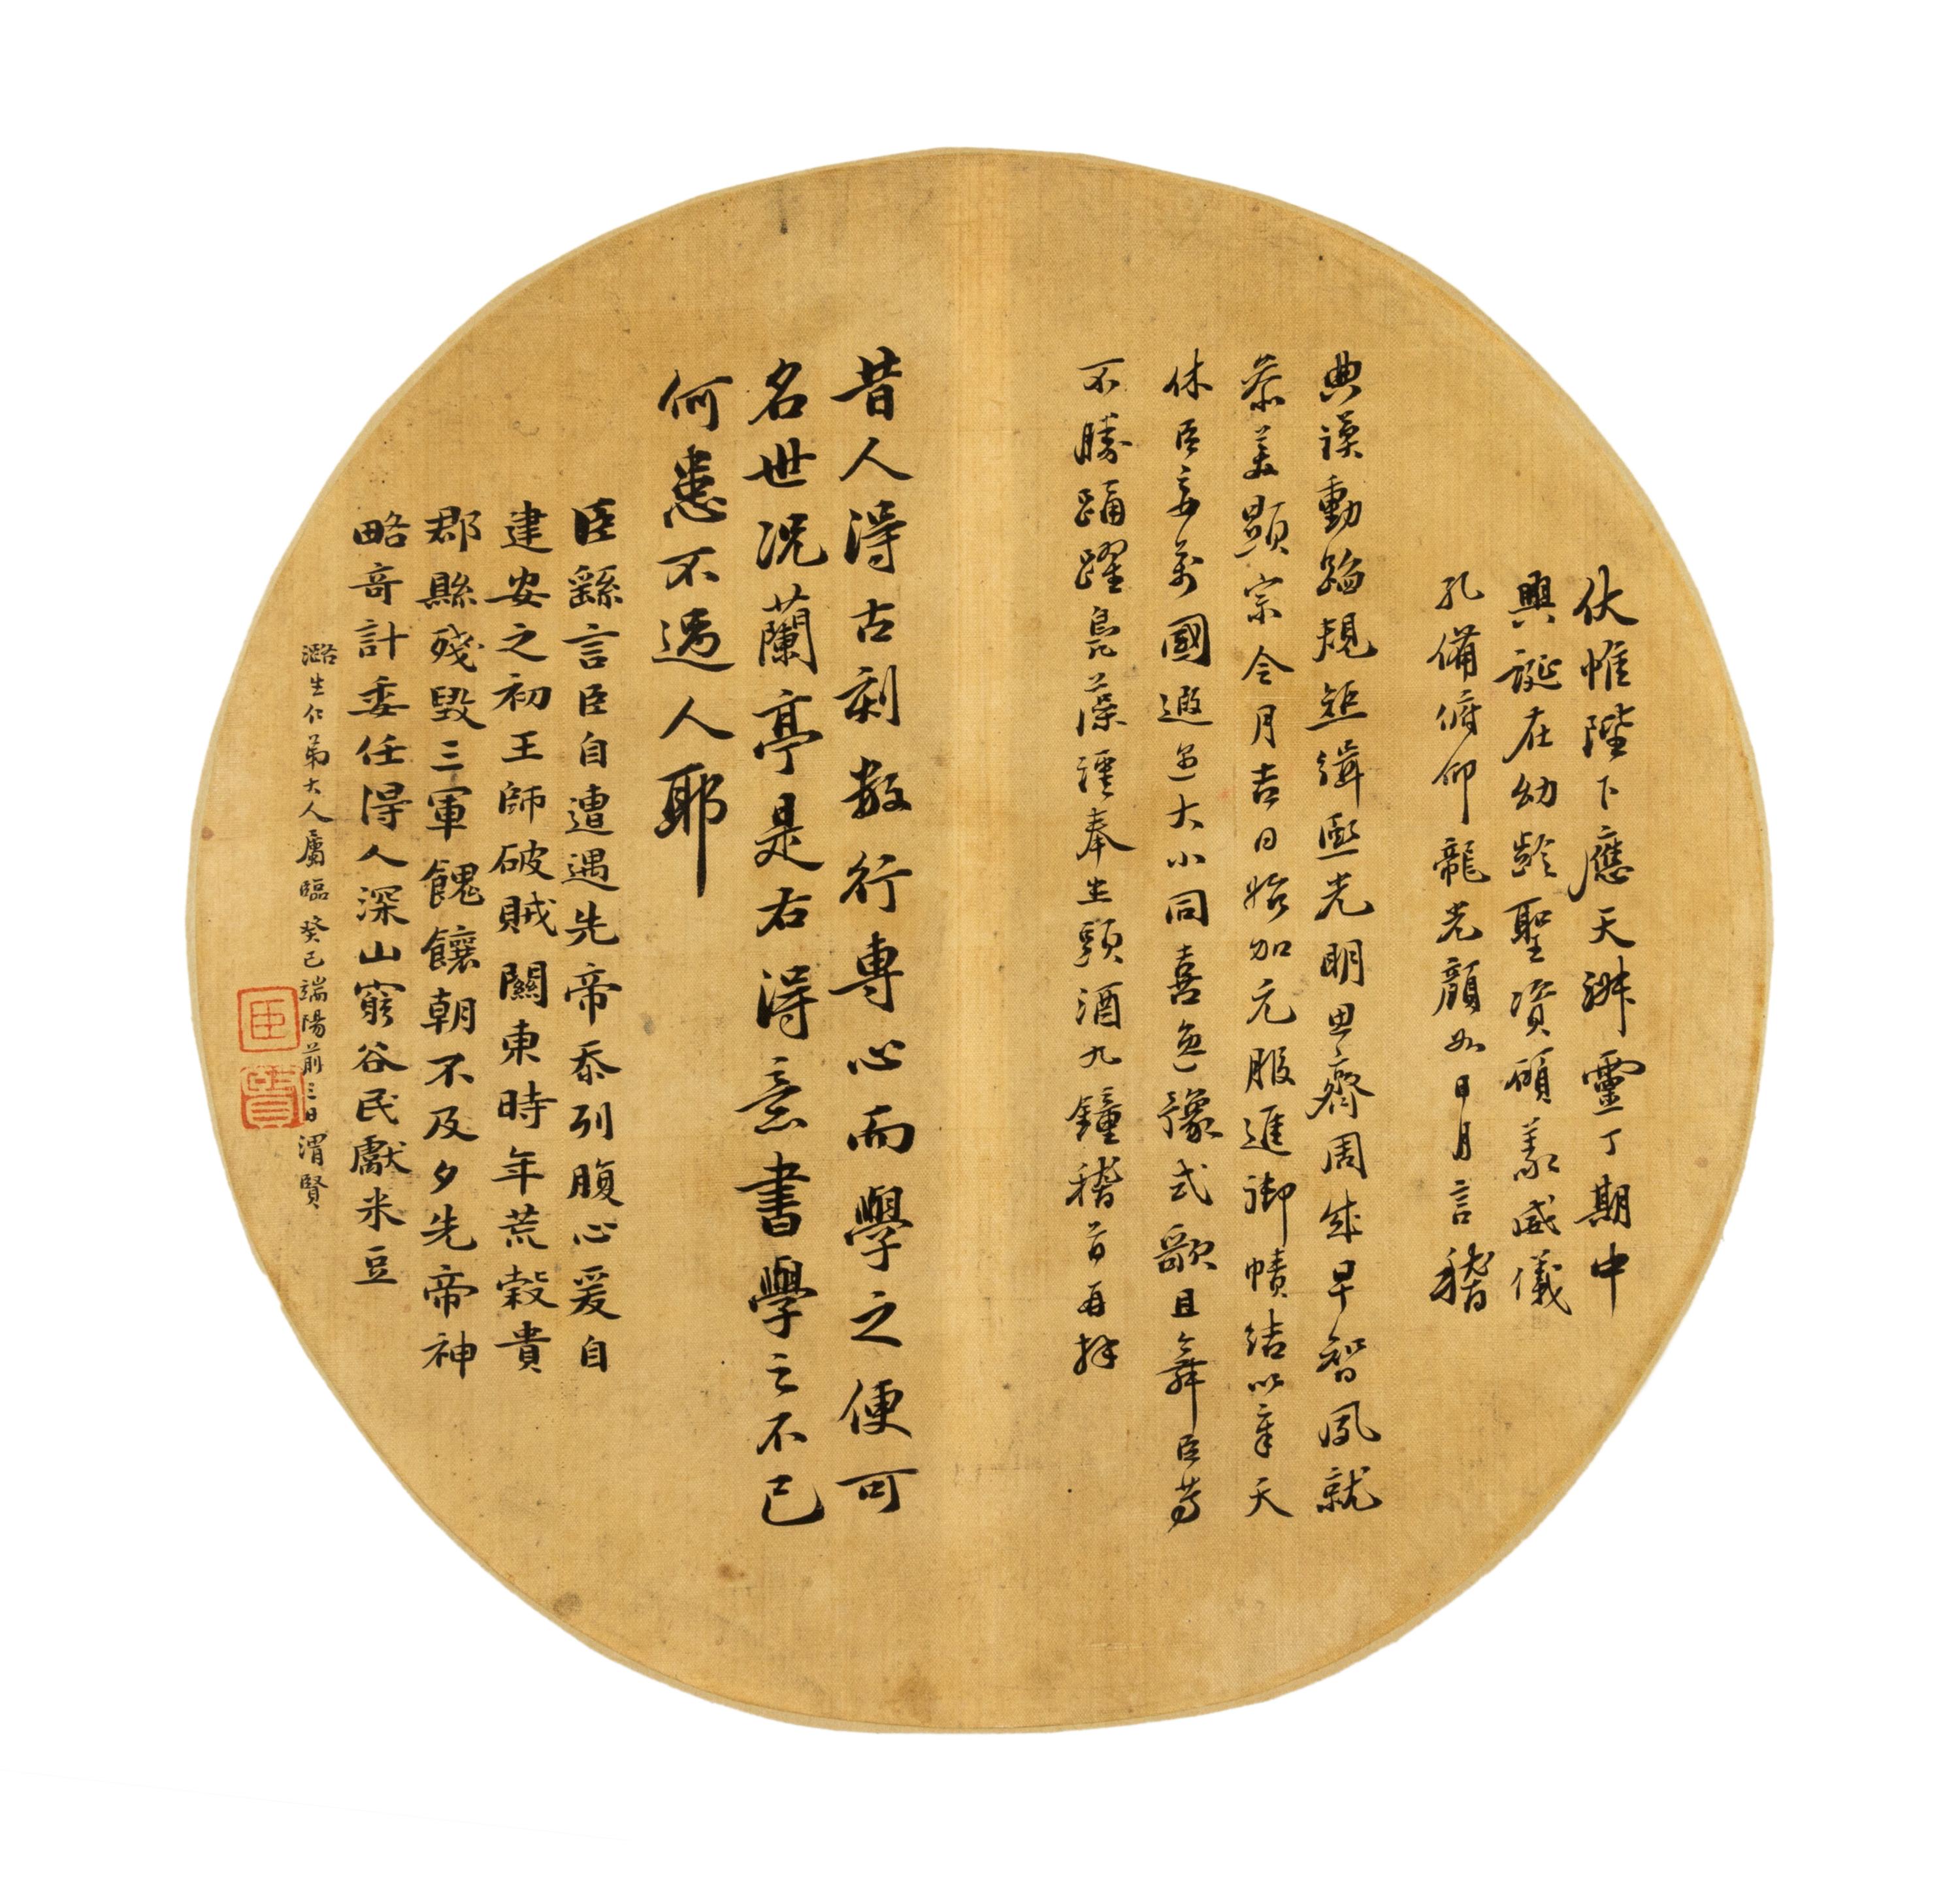 伏惟陛下應天淋靈丁期中
興誕在幼齡聖資碩美威儀
孔備俯仰龍光顏如日月言稽
典謨動蹈規矩緝熙光明思齊周成早智夙就
恭美顯宗令月吉日始加元服進御幘結以章天
休臣妾萬國遐邇大小同喜逸豫式歌且舞臣等
不勝踊躍鳧藻謹奉生頭酒九鐘稽首再拜
昔人得古刻數行專心而學之便可
名世況蘭亭是右得意書學之不已
何患不過人耶
臣繇言臣自遭遇先帝忝列腹心爰自
建安之初王師破賊關東時年荒穀貴
郡縣殘毀三軍餽饟朝不及夕先帝神
略奇計委任得人深山窮谷民獻米豆
潞生仁弟大人屬臨癸巳端陽前三日渭賢
臣